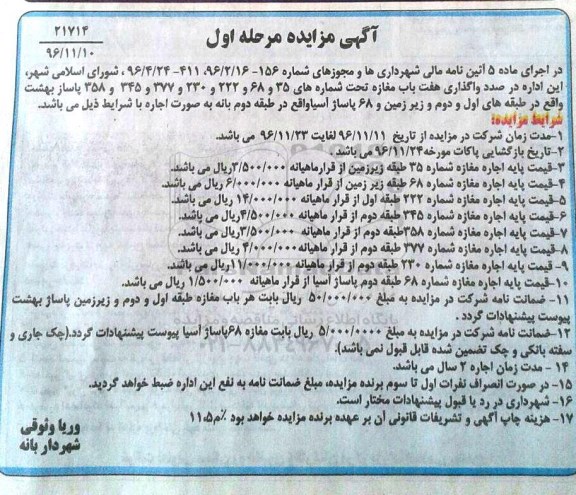 آگهی مزایده مرحله اول
۲۱۷۱۴
۹۶/۱۱/۱۰
در اجرای ماده ۵ آئین نامه مالی شهرداری ها و مجوزهای شماره ۱۵۶- ۹۶/۲/۱۶، ۴۱۱- ۹۶/۴/۲۴ ، شورای اسلامی شهر،
این اداره در صدد واگذاری هفت باب مغازه تحت شماره های ۳۵ و ۶۸ و ۲۲۲ و ۲۳۰ و ۳۷۷ و ۳۴۵ و ۳۵۸ پاساژ بهشت
واقع در طبقه های اول و دوم و زیر زمین و ۶۸ پاساژ آسیاواقع در طبقه دوم بانه به صورت اجاره با شرایط ذیل می باشد.
شرایط مزایده:
۱-مدت زمان شرکت در مزایده از تاریخ ۹۶/۱۱/۱۱ لغایت ۹۶/۱۱/۲۳ می باشد.
۲-تاریخ بازگشایی پاکات مورخه۹۶/۱۱/۲۴می باشد.
۳-قیمت پایه اجاره مغازه شماره ۳۵ طبقه زیرزمین از قرارماهیانه ۳/۵۰۰/۰۰۰ریال می باشد.
۴-قیمت پایه اجاره مغازه شماره ۶۸ طبقه زیر زمین از قرار ماهیانه ۶/۰۰۰/۰۰۰ ریال می باشد.
۵-قیمت پایه اجاره مغازه شماره ۲۲۲ طبقه اول از قرار ماهیانه ۱۴/۰۰۰/۰۰۰ ریال می باشد.
۶-قیمت پایه اجاره مغازه شماره ۳۴۵ طبقه دوم از قرار ماهیانه ۴/۵۰۰/۰۰۰ریال می باشد.
۷-قیمت پایه اجاره مغازه شماره ۳۵۸طبقه دوم از قرار ماهیانه ۳/۵۰۰/۰۰۰ریال می باشد.
۸-قیمت پایه اجاره مغازه شماره ۳۷۷ طبقه دوم از قرار ماهیانه ۴/۰۰۰/۰۰۰ ریال می باشد.
۹- قیمت پایه اجاره مغازه شماره ۲۳۰ طبقه دوم از قرار ماهیانه ۱۱/۰۰۰/۰۰۰ ریال می باشد.
۱۰-قیمت پایه اجاره مغازه شماره ۶۸ طبقه دوم پاساژ آسیا از قرار ماهیانه ۱/۵۰۰/۰۰۰ ریال می باشد.
۱۱- ضمانت نامه شرکت در مزایده به مبلغ ۵۰/۰۰۰/۰۰۰ ریال بابت هر باب مغازه طبقه اول و دوم و زیرزمین پاساژ بهشت
پیوست پیشنهادات گردد .
۱۳-ضمانت نامه شرکت در مزایده به مبلغ ۵/۰۰۰/۰۰۰۰ ریال بابت مغازه ۶۸پاساژ آسیا پیوست پیشنهادات گردد.(چک جاری و
سفته بانکی و چک تضمین شده قابل قبول نمی باشد).
۱۴ - مدت زمان اجاره ۲ سال می باشد.
۱۵- در صورت انصراف نفرات اول تا سوم برنده مزایده، مبلغ ضمانت نامه به نفع این اداره ضبط خواهد گردید.
۱۶- شهرداری در رد یا قبول پیشنهادات مختار است.
۱۷- هزینه چاپ آگهی و تشریفات قانونی آن بر عهده برنده مزایده خواهد بود ٪م۱۱.۵
وریا وثوقی
شهردار بانه